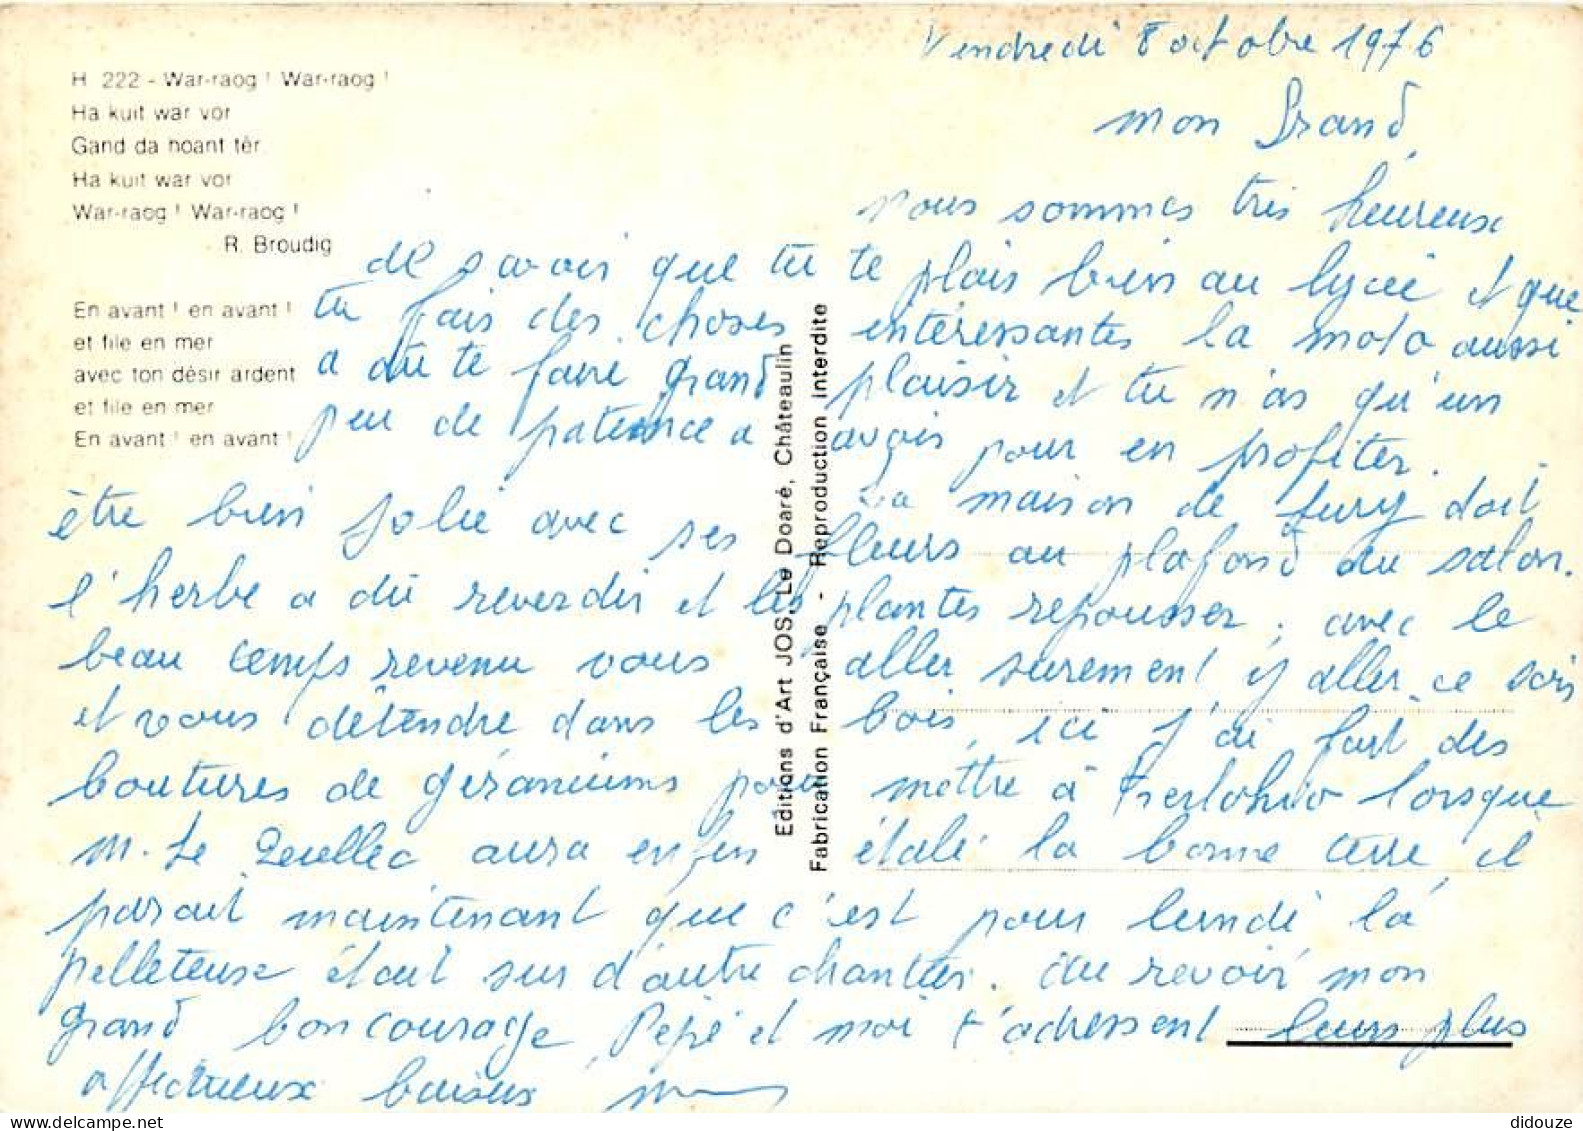 Vendredi 8 octobre 1976
mon Grand,
H 222 - War-raog ! War-raog !
Ha kuit war vor
Gand da hoant têr
Ha kuit war vor
War-raog ! War-raog !
R. Broudig
En avant ! en avant !
et file en mer
avec ton désir ardent
et file en mer
En avant ! en avant !
nous sommes très heureux
de savoir que tu te plais bien au lycée et que
tu fais des choses intéressantes la moto aussi
a dû te faire grand plaisir et tu n'as qu'un
peu de patience a avoir pour en profiter.
La maison de doit
être bien jolie avec ses fleurs au plafond du salon.
l'herbe a dû reverdir et les plantes repousser, avec le
beau temps revenu vous aller surement y aller ce soir
et vous détendre dans les bois, ici j'ai fait des
boutures de géraniums pour mettre à lorsque
M. Le aura enfin étalé la bonne terre il
parait maintenant que c'est pour lundi la
pelleteuse était sur d'autre chantier. Au revoir mon
grand bon courage, Pépé et moi t'adressent leurs plus
affectueux baisers
Editions d'Art JOS Le Doaré, Châteaulin
Fabrication Française - Reproduction Interdite
didouze